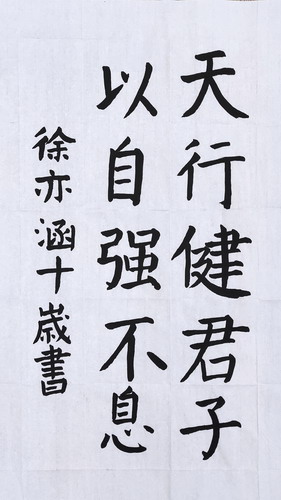 天行健君子
以自强不息
徐亦涵十歳書